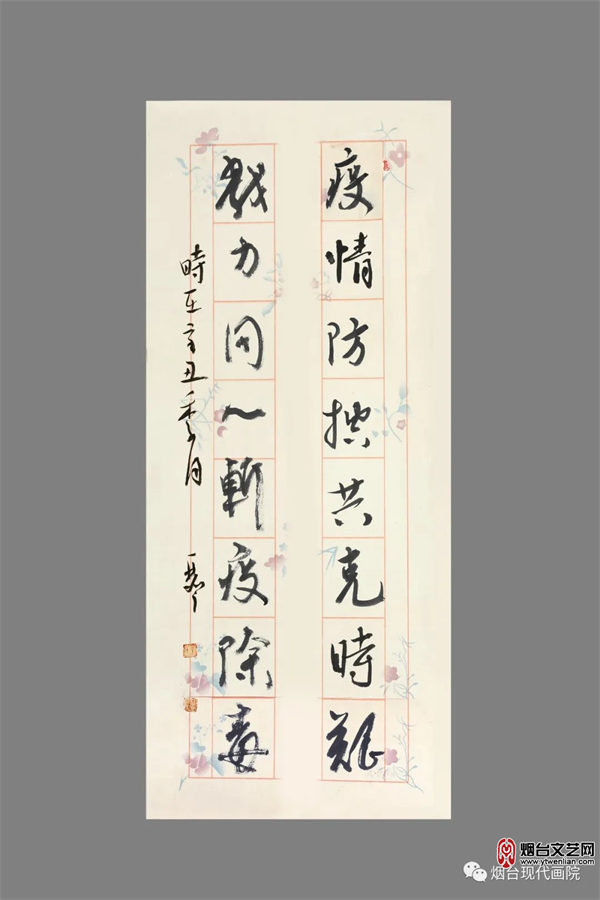 疫情防控共克時艱
戮力同心斬疫除毒
時在辛丑季月
烟台文艺网
www.ytwenlian.com
烟台现代画院